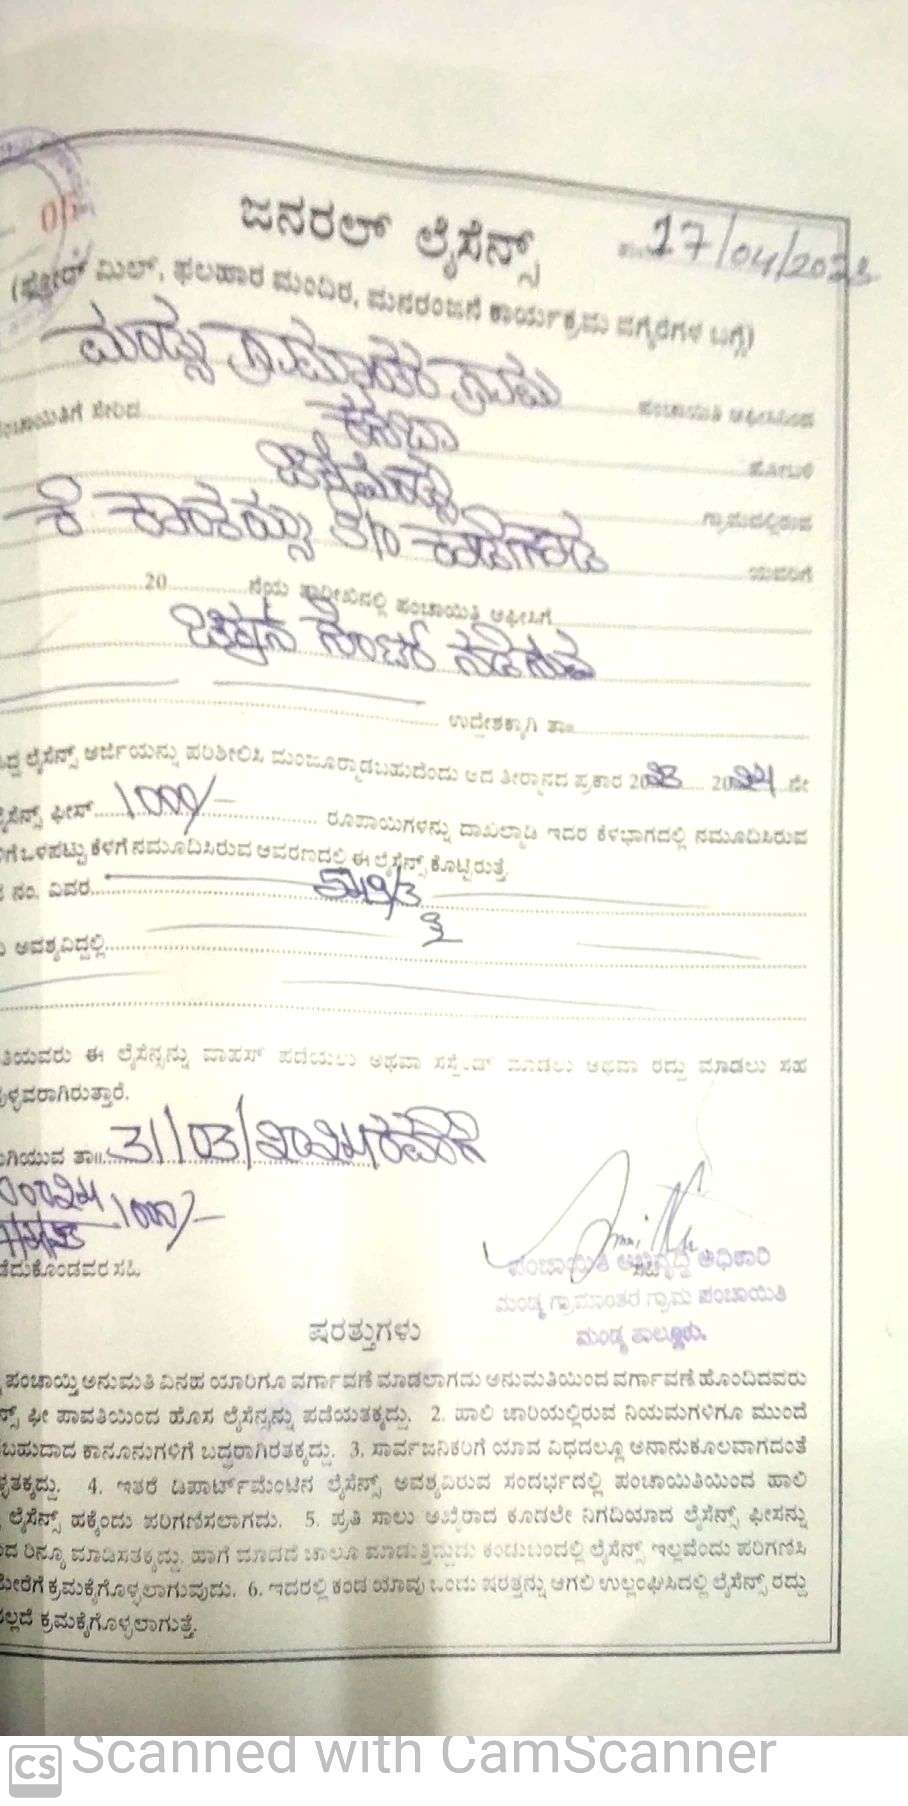 ಜನರಲ್ ಲೈಸೆನ್ಸ್
17/04/2023
(ಫ್ಲೋರ್ ಮಿಲ್, ಫಲಹಾರ ಮಂದಿರ, ಮನರಂಜನೆ ಕಾರ್ಯಕ್ರಮ ವಗೈರೆಗಳ ಬಗ್ಗೆ)
ಮಂಡ್ಯ ಗ್ರಾಮಾಂತರ ಗ್ರಾಮ ಪಂಚಾಯಿತಿ ಆಫೀಸಿನಿಂದ
ಪಂಚಾಯಿತಿಗೆ ಸೇರಿದ ಕಸಬಾ ಹೋಬಳಿ
ಗ್ರಾಮದಲ್ಲಿರುವ
ಕೆ S/o ಯವರಿಗೆ
20 ನೆಯ ತಾರೀಖಿನಲ್ಲಿ ಪಂಚಾಯಿತಿ ಆಫೀಸಿಗೆ
ಸೆಂಟರ್ ನಡೆಸುವ
ಉದ್ದೇಶಕ್ಕಾಗಿ ತಾ॥
ಲೈಸೆನ್ಸ್ ಅರ್ಜಿಯನ್ನು ಪರಿಶೀಲಿಸಿ ಮಂಜೂರ್ಮಾಡಬಹುದೆಂದು ಆದ ತೀರ್ಮಾನದ ಪ್ರಕಾರ 2023 2024 ನೇ
ಲೈಸೆನ್ಸ್ ಫೀಸ್ 1000/- ರೂಪಾಯಿಗಳನ್ನು ದಾಖಲ್ಮಾಡಿ ಇದರ ಕೆಳಭಾಗದಲ್ಲಿ ನಮೂದಿಸಿರುವ
ಒಳಪಟ್ಟು ಕೆಳಗೆ ನಮೂದಿಸಿರುವ ಆವರಣದಲ್ಲಿ ಈ ಲೈಸೆನ್ಸ್ ಕೊಟ್ಟಿರುತ್ತೆ.
ನಂ. ವಿವರ 549/3
ಅವಶ್ಯವಿದ್ದಲ್ಲಿ
ಈ ಲೈಸೆನ್ಸನ್ನು ವಾಪಸ್ ಪಡೆಯಲು ಅಥವಾ ಸಸ್ಪೆಂಡ್ ಮಾಡಲು ಅಥವಾ ರದ್ದು ಮಾಡಲು ಸಹ
ತಾ॥ 31/03/2024 ರವರೆಗೆ
1000/-
ಸಹಿ
ಪಂಚಾಯಿತಿ ಅಭಿವೃದ್ಧಿ ಅಧಿಕಾರಿ
ಮಂಡ್ಯ ಗ್ರಾಮಾಂತರ ಗ್ರಾಮ ಪಂಚಾಯಿತಿ
ಮಂಡ್ಯ ತಾಲ್ಲೂಕು.
ಷರತ್ತುಗಳು
ಪಂಚಾಯ್ತಿ ಅನುಮತಿ ವಿನಹ ಯಾರಿಗೂ ವರ್ಗಾವಣೆ ಮಾಡಲಾಗದು ಅನುಮತಿಯಿಂದ ವರ್ಗಾವಣೆ ಹೊಂದಿದವರು
ಫೀ ಪಾವತಿಯಿಂದ ಹೊಸ ಲೈಸೆನ್ಸನ್ನು ಪಡೆಯತಕ್ಕದ್ದು. 2. ಹಾಲಿ ಜಾರಿಯಲ್ಲಿರುವ ನಿಯಮಗಳಿಗೂ ಮುಂದೆ
ಬಹುದಾದ ಕಾನೂನುಗಳಿಗೆ ಬದ್ಧರಾಗಿರತಕ್ಕದ್ದು. 3. ಸಾರ್ವಜನಿಕರಿಗೆ ಯಾವ ವಿಧದಲ್ಲೂ ಅನಾನುಕೂಲವಾಗದಂತೆ
4. ಇತರೆ ಡಿಪಾರ್ಟ್‌ಮೆಂಟಿನ ಲೈಸೆನ್ಸ್ ಅವಶ್ಯವಿರುವ ಸಂದರ್ಭದಲ್ಲಿ ಪಂಚಾಯಿತಿಯಿಂದ ಹಾಲಿ
ಲೈಸೆನ್ಸ್ ಹಕ್ಕೆಂದು ಪರಿಗಣಿಸಲಾಗದು. 5. ಪ್ರತಿ ಸಾಲು ಆಖೈರಾದ ಕೂಡಲೇ ನಿಗದಿಯಾದ ಲೈಸೆನ್ಸ್ ಫೀಸನ್ನು
ರಿನ್ಯೂ ಮಾಡಿಸತಕ್ಕದ್ದು. ಹಾಗೆ ಮಾಡದೆ ಚಾಲೂ ಮಾಡುತ್ತಿದ್ದುದು ಕಂಡುಬಂದಲ್ಲಿ ಲೈಸೆನ್ಸ್ ಇಲ್ಲವೆಂದು ಪರಿಗಣಿಸಿ
ಮೇರೆಗೆ ಕ್ರಮಕೈಗೊಳ್ಳಲಾಗುವುದು. 6. ಇದರಲ್ಲಿ ಕಂಡ ಯಾವು ಒಂದು ಷರತ್ತನ್ನು ಆಗಲಿ ಉಲ್ಲಂಘಿಸಿದಲ್ಲಿ ಲೈಸೆನ್ಸ್ ರದ್ದು
ಕ್ರಮಕೈಗೊಳ್ಳಲಾಗುತ್ತೆ.
CS Scanned with CamScanner